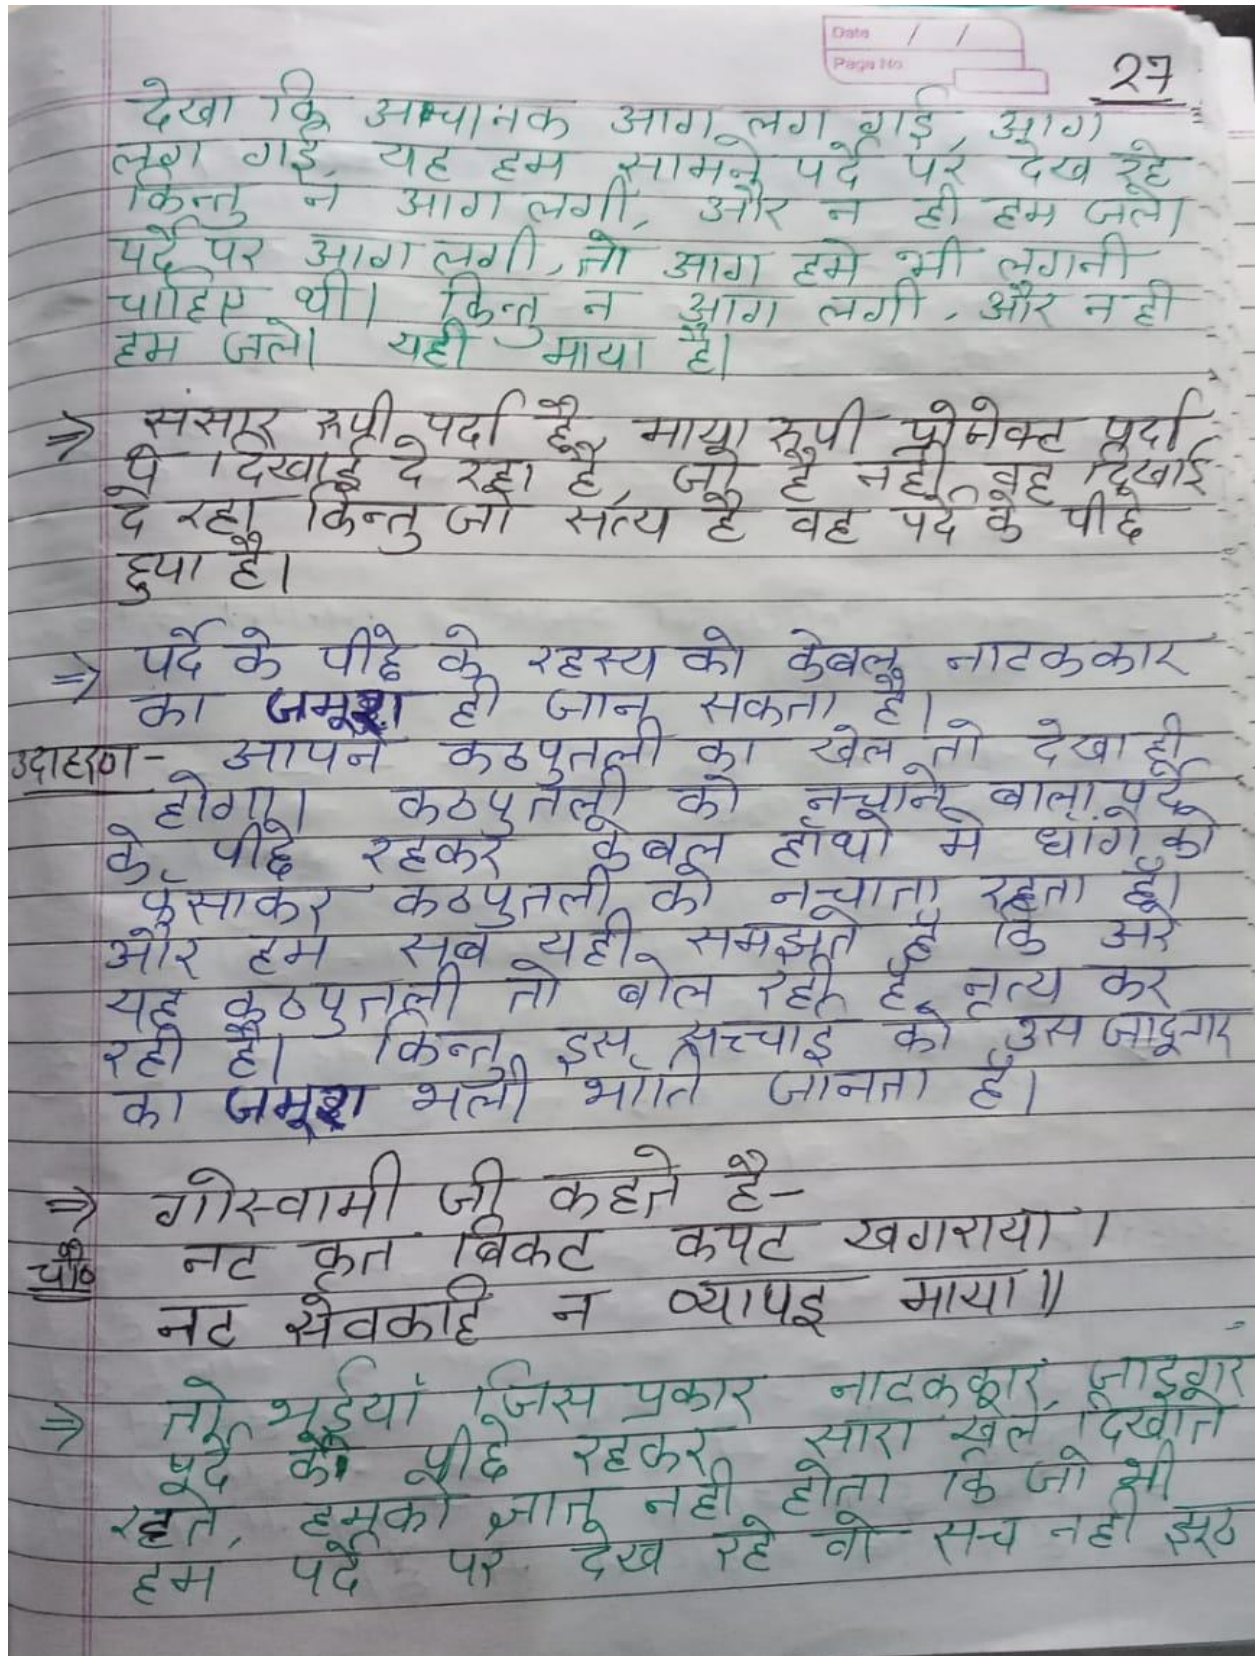 Date / /
Page No
27
देखा कि अचानक आग लग गई, आग
लग गई, यह हम सामने पर्दे पर देख रहे
किन्तु न आग लगी, और न ही हम जले।
पर्दे पर आग लगी, तो आग हमे भी लगनी
चाहिए थी। किन्तु न आग लगी, और न ही
हम जले। यही माया है।
⇒ संसार रूपी पर्दा है, माया रूपी प्रोजेक्ट पर्दा
पे दिखाई दे रहा है, जो है नही वह दिखाई
दे रहा किन्तु जो सत्य है वह पर्दे के पीछे
छुपा है।
⇒ पर्दे के पीछे के रहस्य को केबल नाटककार
का जमूरा ही जान सकता है।
उदाहरण - आपने कठपुतली का खेल तो देखा ही
होगा। कठपुतली को नचाने बाला पर्दे
के पीछे रहकर केबल हाथो मे धागे को
फँसाकर कठपुतली को नचाता रहता है।
और हम सब यही समझते है कि अरे
यह कठपुतली तो बोल रही है, नृत्य कर
रही है। किन्तु इस सच्चाई को उस जादूगर
का जमूरा भली भाँति जानता है।
⇒ गोस्वामी जी कहते है-
चौ० नट कृत बिकट कपट खगराया ।
नट सेवकहि न व्यापइ माया॥
⇒ तो भईयां जिस प्रकार नाटककार, जादूगर
पर्दे के पीछे रहकर सारा खेल दिखाते
रहते, हमको ज्ञात नही होता कि जो भी
हम पर्दे पर देख रहे वो सच नही झूठ